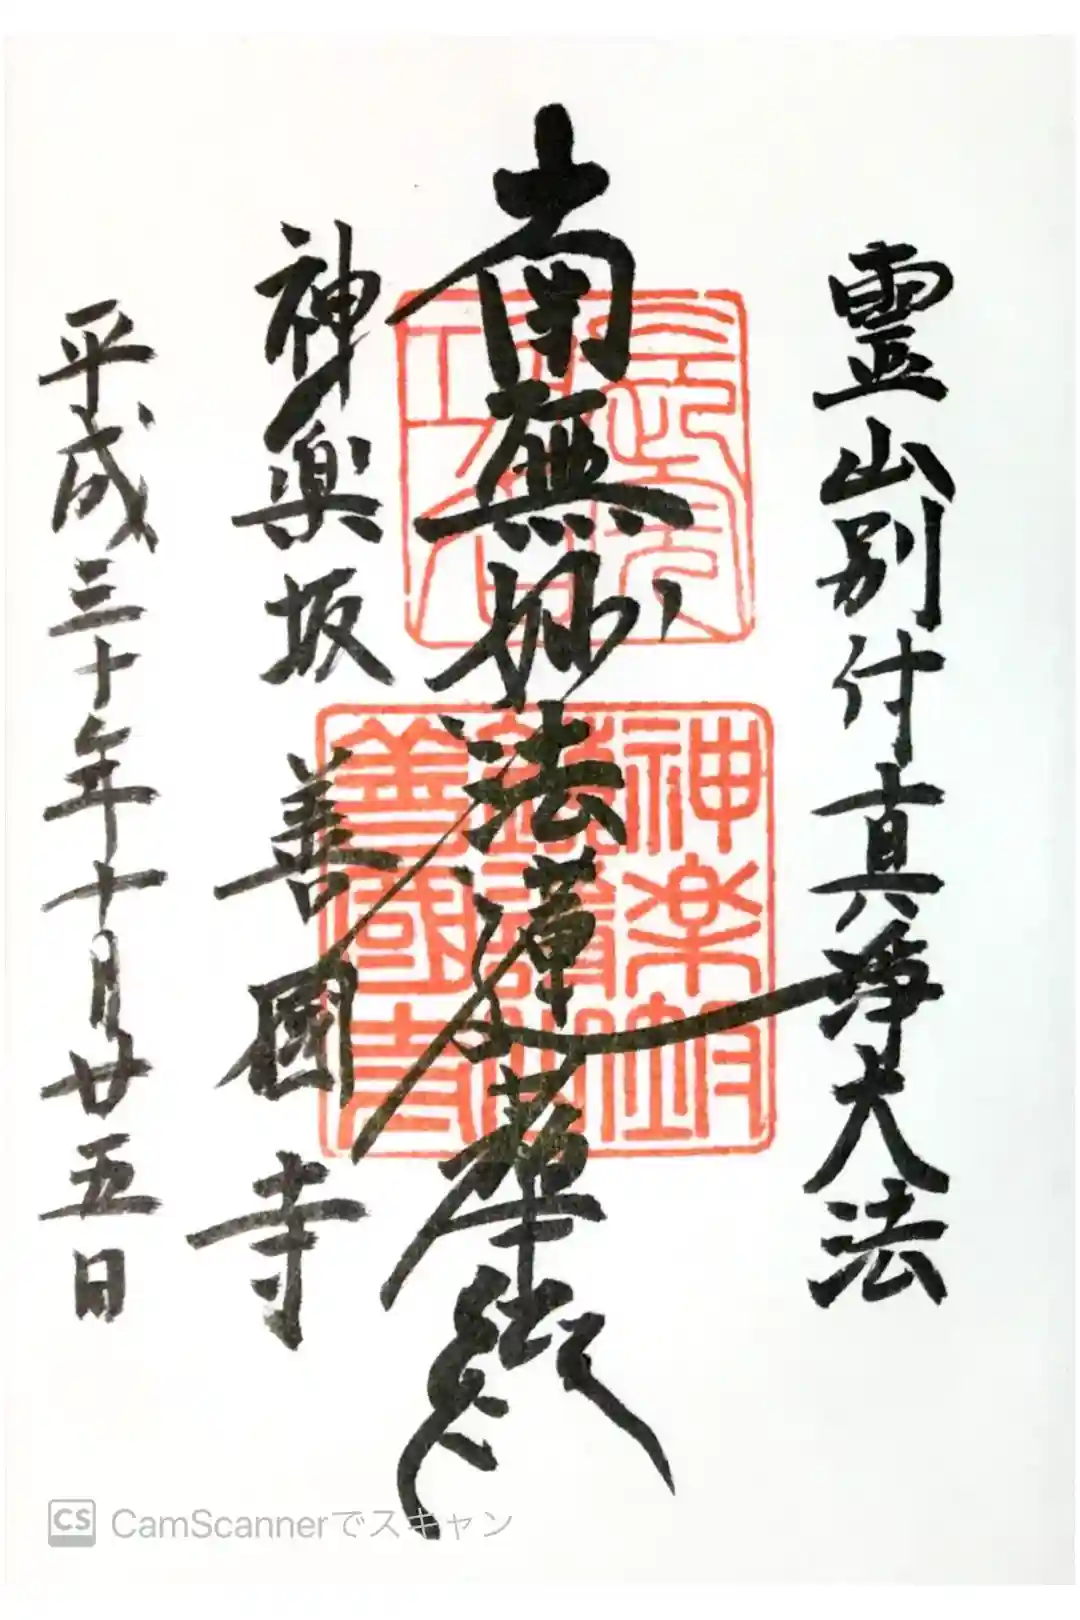 霊山別付真浄大法
南無妙法蓮華経
神楽坂 善國寺
平成三十年十月廿五日
神楽坂
鎮護山
善國寺
CS CamScannerでスキャン